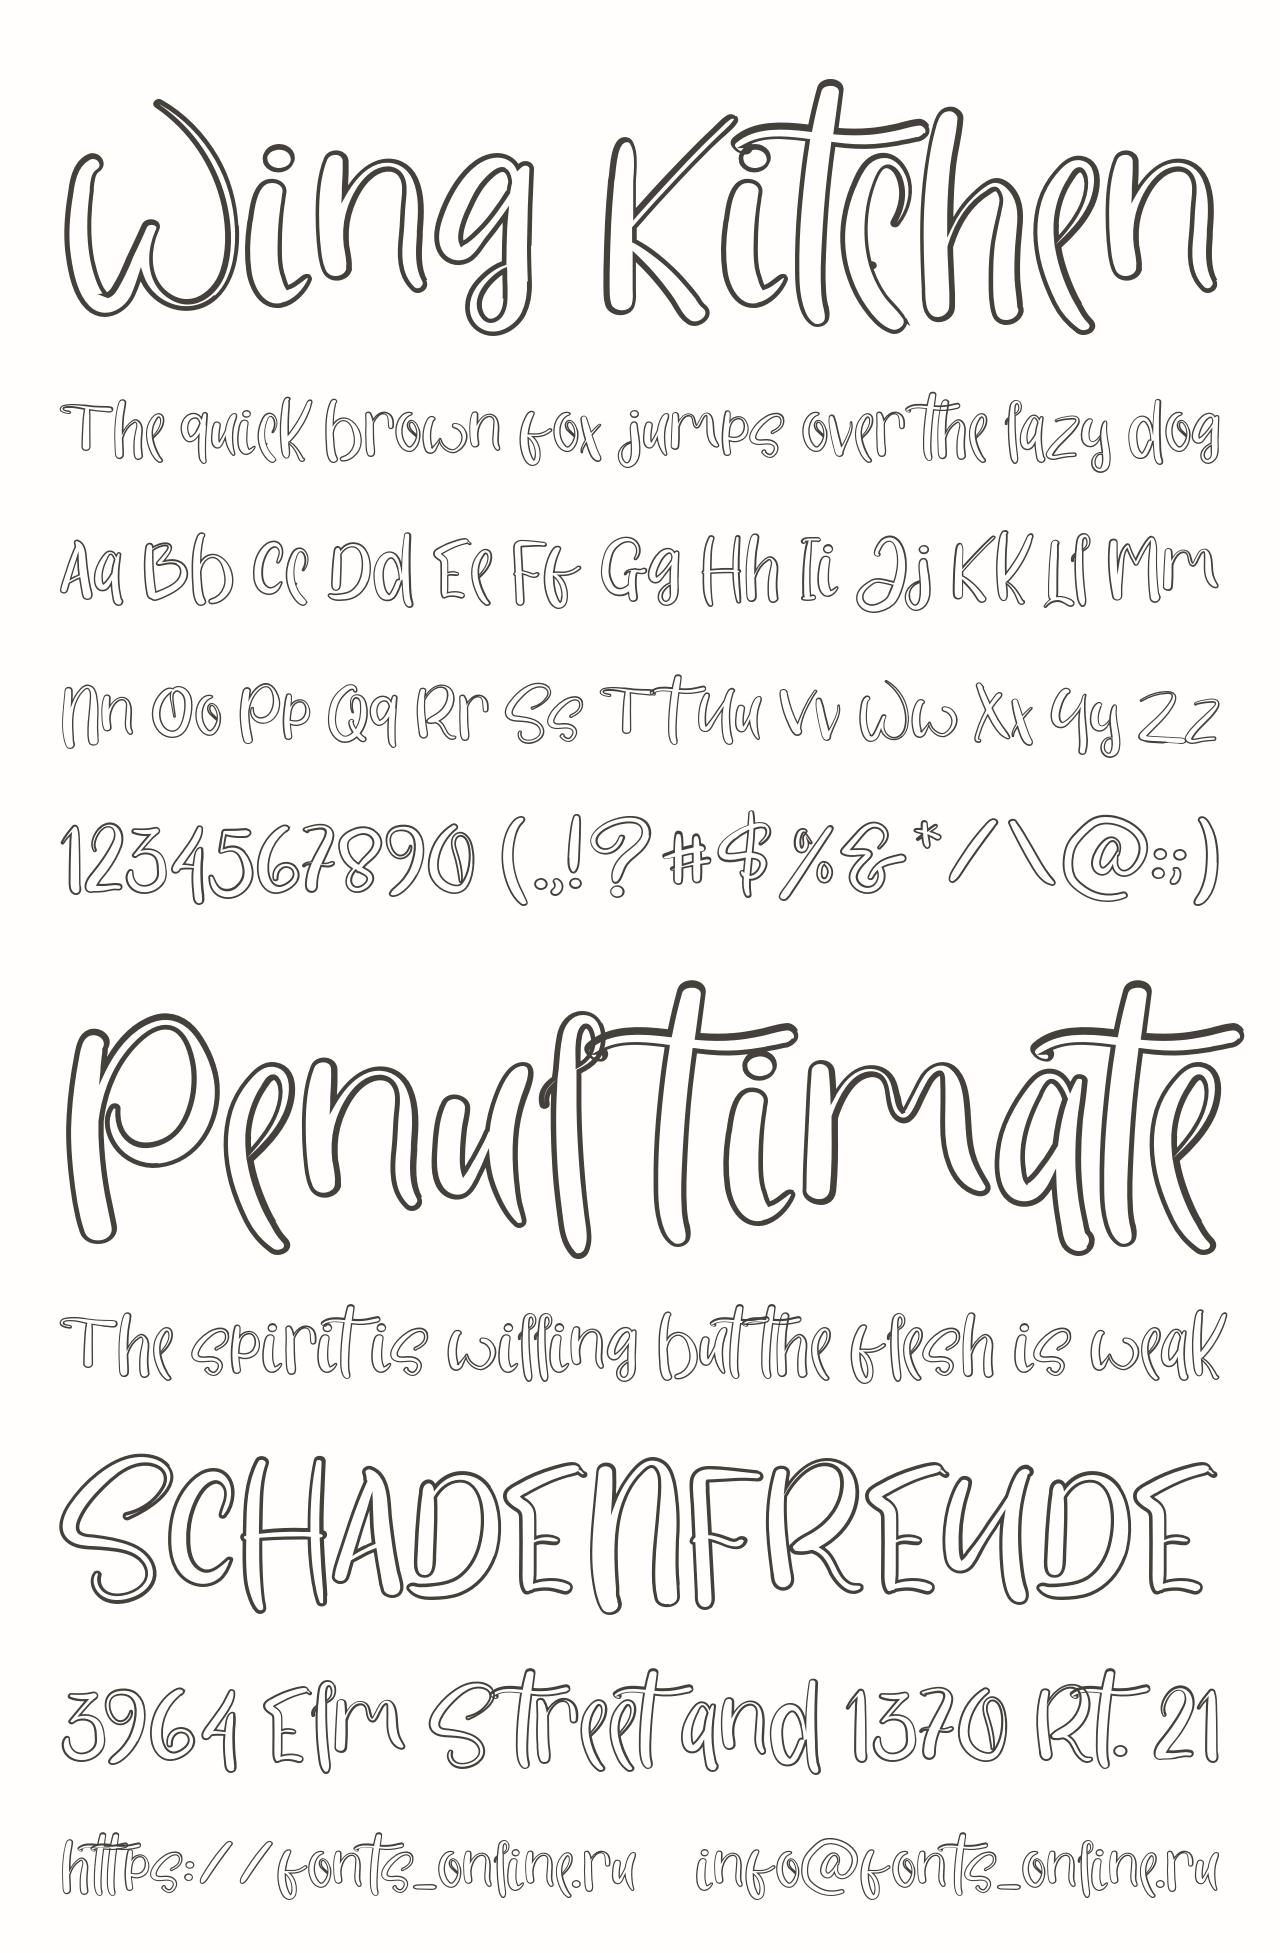 Wing Kitchen
The quick brown fox jumps over the lazy dog
Aa Bb Cc Dd Ee Ff Gg Hh Ii Jj Kk Ll Mm
Nn Oo Pp Qq Rr Ss Tt Uu Vv Ww Xx Yy Zz
1234567890 (.,!? #$%&*/\@:;)
Penultimate
The spirit is willing but the flesh is weak
SCHADENFREUDE
3964 Elm Street and 1370 Rt. 21
https://fonts_online.ru info@fonts_online.ru